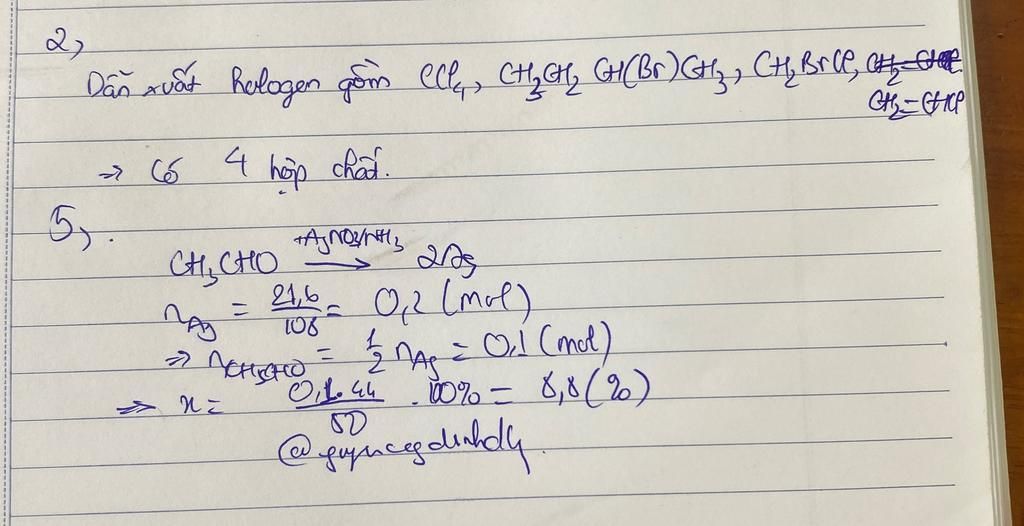 2,
Dẫn xuất halogen gồm CCl₄, CH₃CH₂CH(Br)CH₃, CH₂BrCl,
CH₂=CHCl
=> Có 4 hợp chất.
5,.
CH₃CHO +AgNO3/NH3 → 2Ag
nAg = 21,6/108 = 0,2 (mol)
=> nCH3CHO = 1/2 nAg = 0,1 (mol)
=> x = 0,1.44/50 . 100% = 8,8 (%)